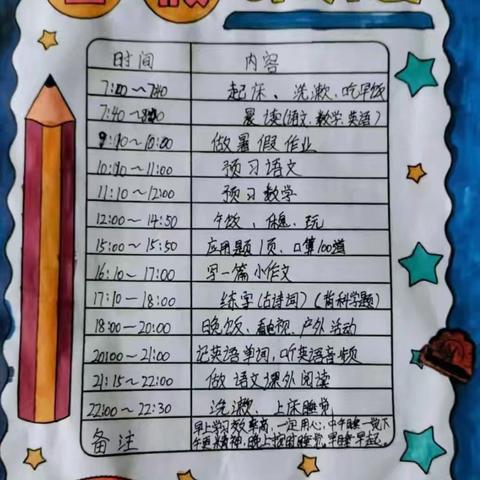 时间 内容
7:00～7:40 起床、洗漱、吃早饭
7:40～8:00 晨读(语文、数学、英语)
9:10～10:00 做暑假作业
10:10～11:00 预习语文
11:10～12:00 预习数学
12:00～14:50 午饭、休息、玩
15:00～15:50 应用题1页、口算100道
16:10～17:00 写一篇小作文
17:10～18:00 练字(古诗词)(背科学题)
18:00～20:00 晚饭、看电视、户外活动
20:00～21:00 记英语单词,听英语音频
21:15～22:00 做语文课外阅读
22:00～22:30 洗漱、上床睡觉
备注 早上学习效率高,一定用心,中午睡一觉下
午更精神,晚上按时睡觉,早睡早起。